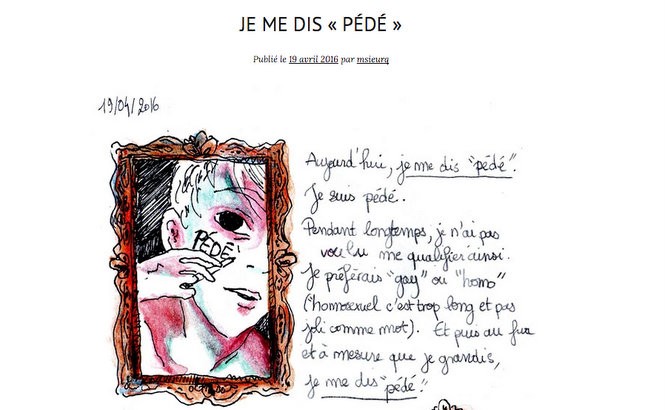 JE ME DIS « PÉDÉ »
Publié le 19 avril 2016 par msieurq
19/04/2016
Aujourd'hui, je me dis "pédé".
Je suis pédé.
PÉDÉ
Pendant longtemps, je n'ai pas
voulu me qualifier ainsi.
Je préférais "gay" ou "homo"
("homosexuel" c'est trop long et pas
joli comme mot). Et puis au fur
et à mesure que je grandis,
je me dis "pédé".